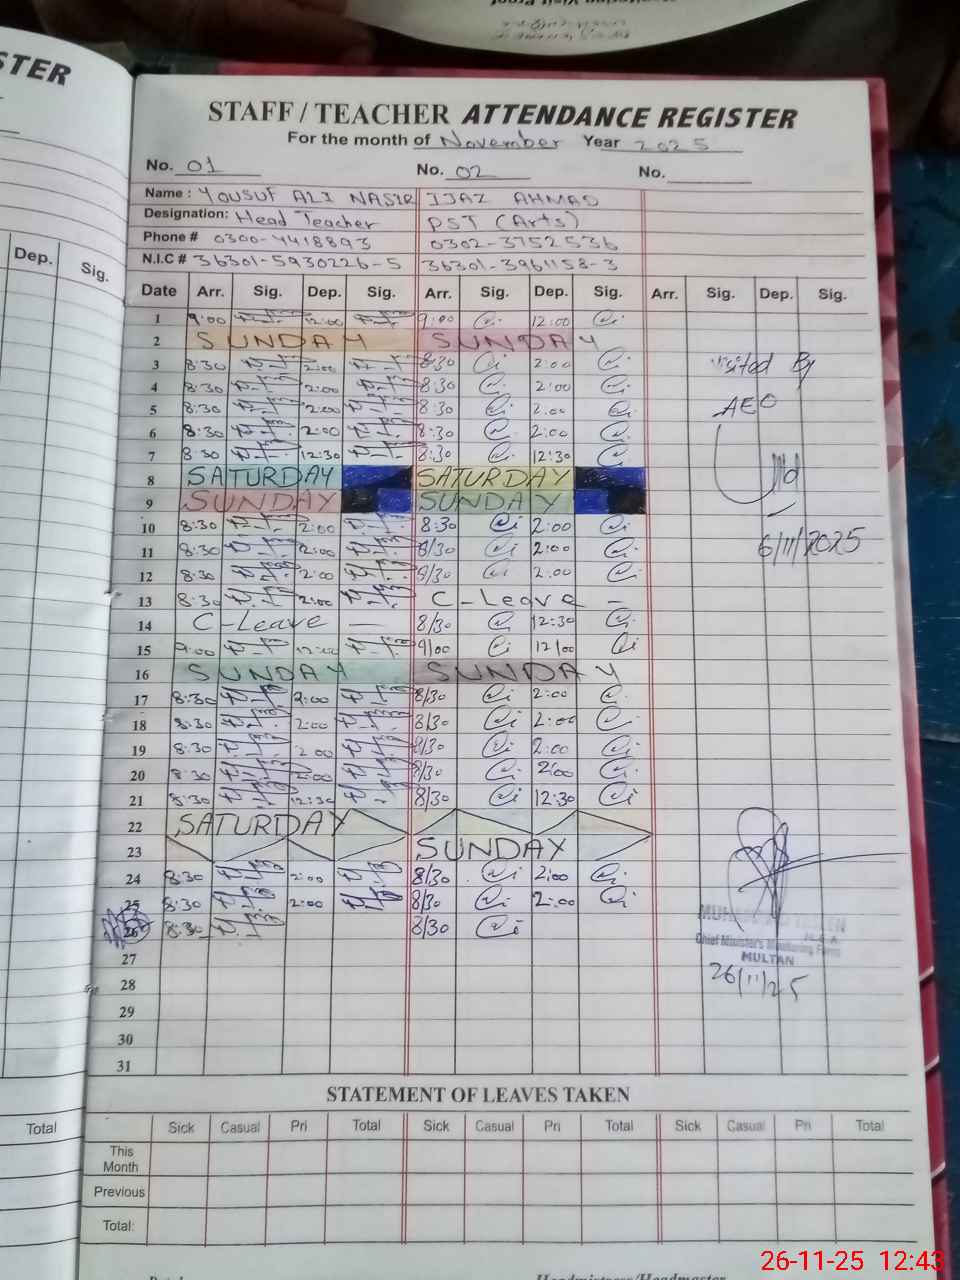 STER
STAFF / TEACHER ATTENDANCE REGISTER
For the month of November Year 2025
No. 01 No. 02 No.
Name : YOUSUF ALI NASIR IJAZ AHMAD
Designation: Head Teacher PST (Arts)
Phone # 0300-4418893 0302-3752536
N.I.C # 36301-5930226-5 36301-3961158-3
Dep. Sig.
Date Arr. Sig. Dep. Sig. Arr. Sig. Dep. Sig. Arr. Sig. Dep. Sig.
1 9:00 12:00 9:00 12:00
2 SUNDAY SUNDAY
3 8:30 2:00 8:30 2:00
visited By
4 8:30 2:00 8:30 2:00
5 8:30 2:00 8:30 2.00
AEO
6 8:30 2:00 8:30 2:00
7 8:30 12:30 8:30 12:30
8 SATURDAY SATURDAY
9 SUNDAY SUNDAY
10 8:30 2:00 8:30 2:00
11 8:30 2:00 8/30 2:00
6/11/2025
12 8:30 2:00 8/30 2:00
13 8:30 2:00 C-Leave -
14 C-Leave - 8/30 12:30
15 9:00 12:00 9/00 12/00
16 SUNDAY SUNDAY
17 8:30 2:00 8/30 2:00
18 8:30 2:00 8/30 2:00
19 8:30 2:00 8/30 2:00
20 8:30 2:00 8/30 2:00
21 8:30 12:30 8/30 12:30
22 SATURDAY
23 SUNDAY
24 8:30 2:00 8/30 2:00
25 8:30 2:00 8/30 2:00
26 8:30 8/30
Chief Minister's Monitoring Force
MULTAN
27
26/11/25
28
29
30
31
STATEMENT OF LEAVES TAKEN
Total
Sick Casual Pri Total Sick Casual Pri Total Sick Casual Pri Total
This Month
Previous
Total:
Headmistress/Headmaster
26-11-25 12:43